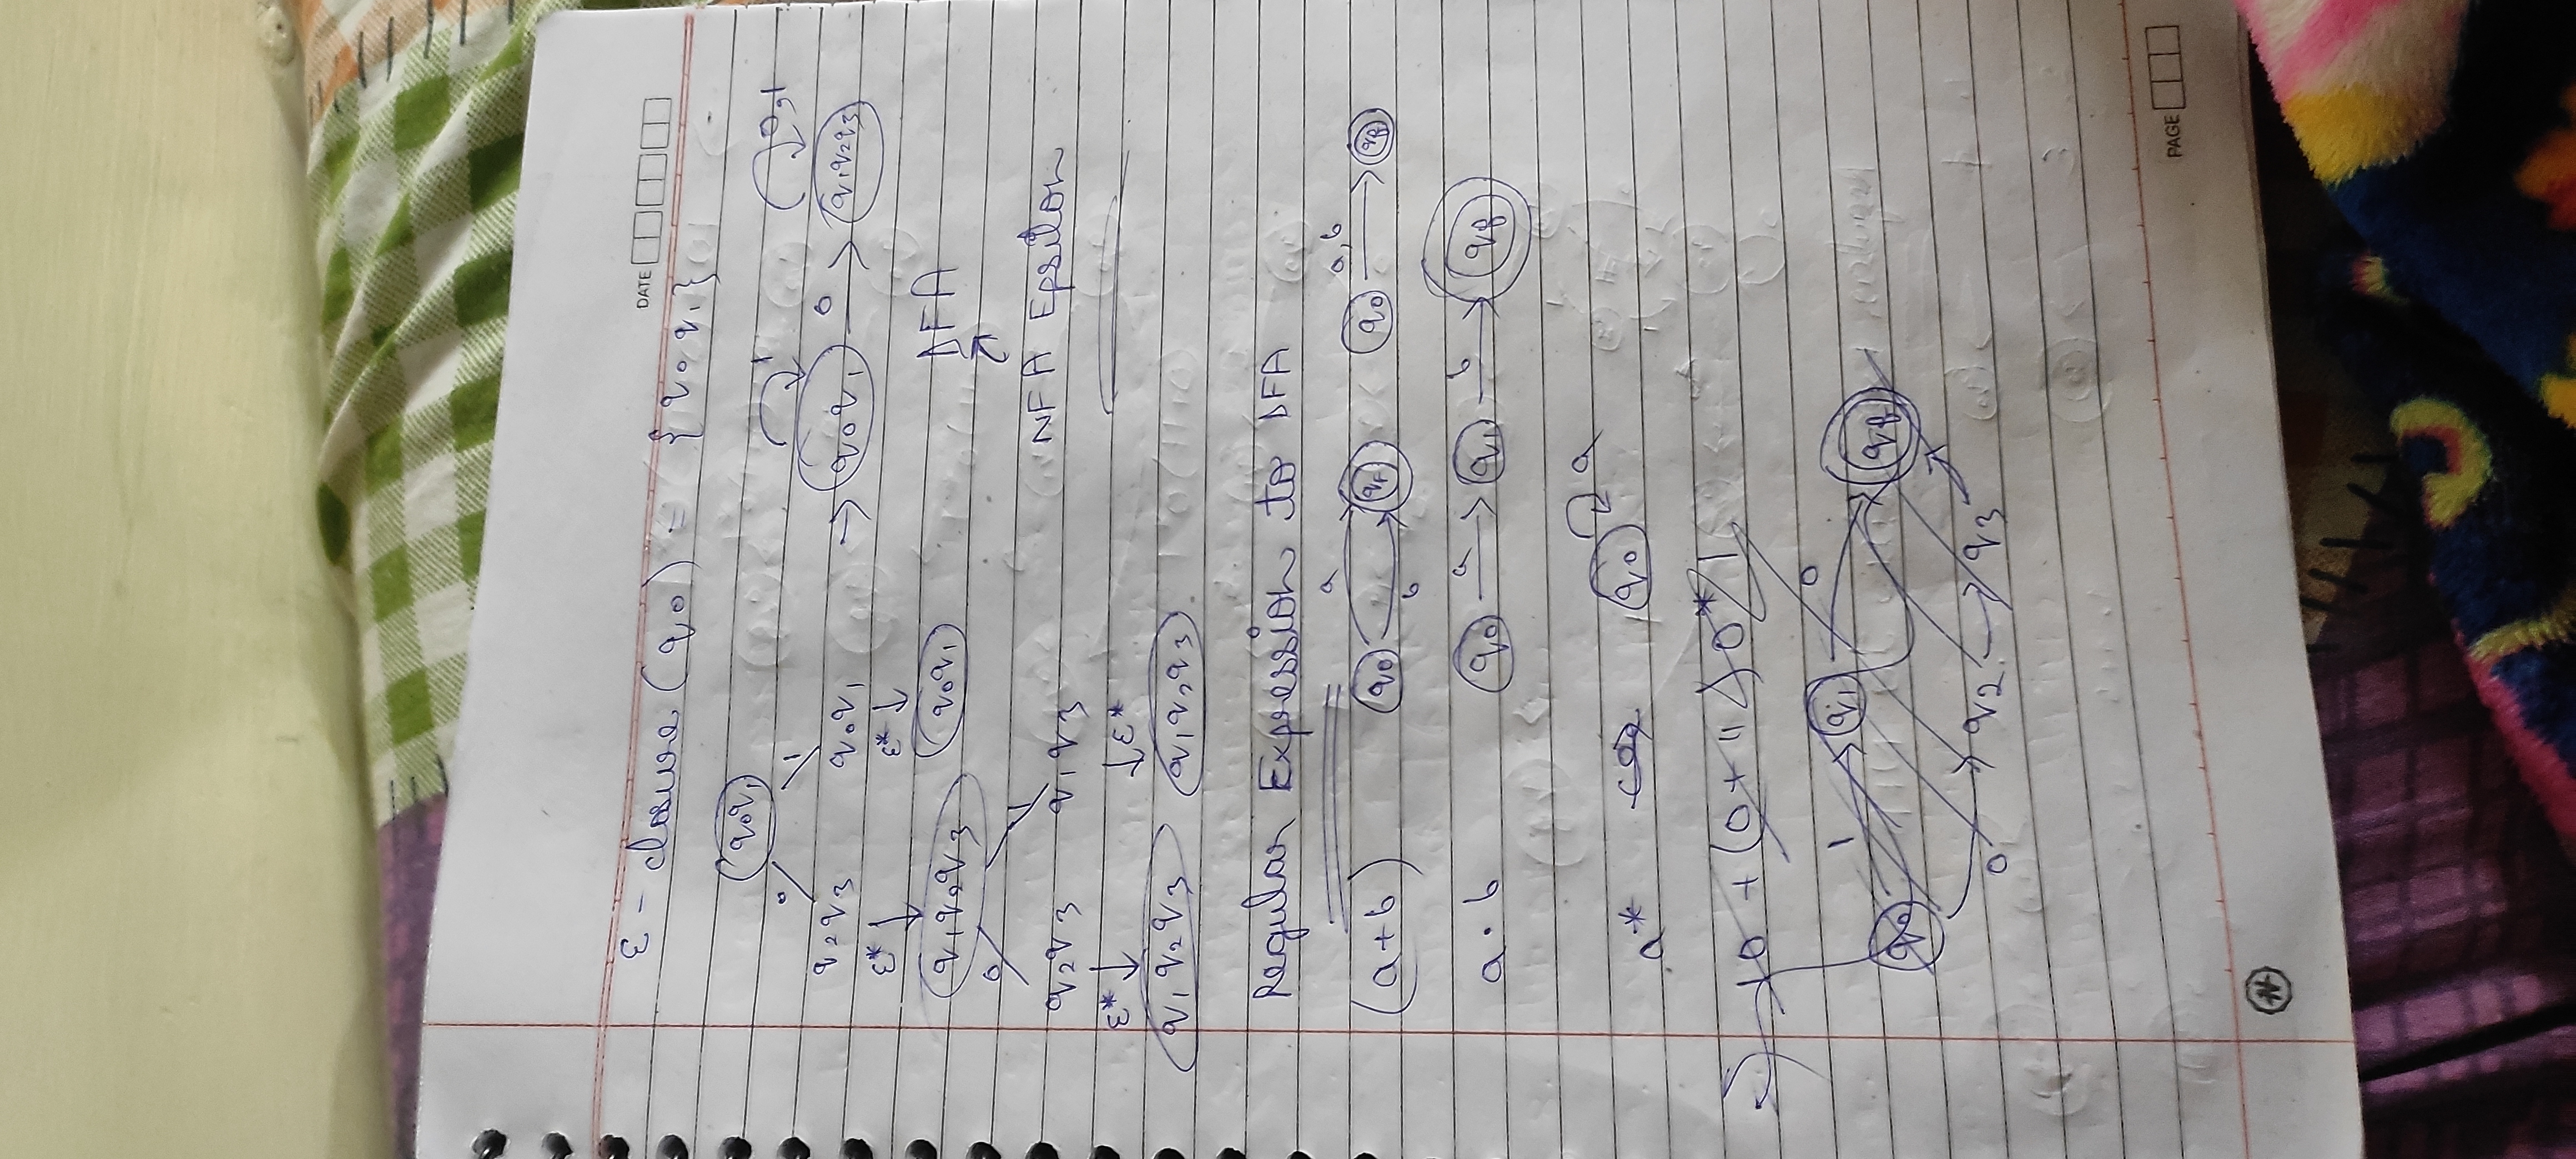 DATE
ε - closure (q0) = {q0q1}
q0q1
0 1
q2q3 q0q1
ε* ε*
q1q2q3 q0q1
0 1
q2q3 q1q3
ε* ε*
q1q2q3 q1q2q3
1 0,1
q0q1 0 q1q2q3
DFA
NFA Epsilon
Regular Expression to DFA
(a+b) q0 a b qf q0 a,b qf
a·b q0 a q1 b qf
a* q0 a
10 + (0+11)0*1
q0 1 q1 0 qf
0 q2 q3
PAGE
N